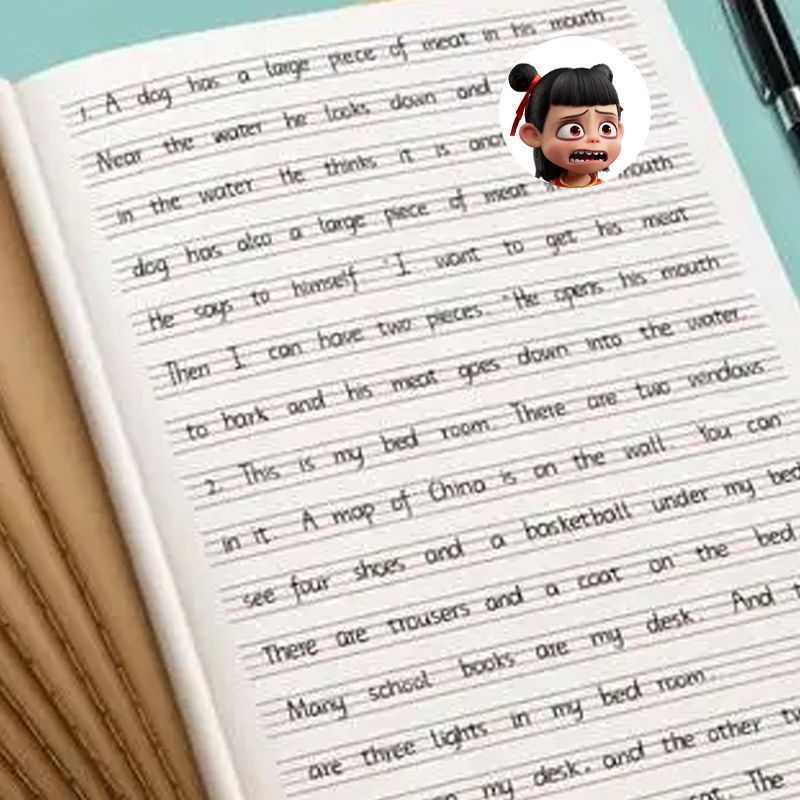 1. A dog has a large piece of meat in his mouth.
Near the water he looks down and
in the water He thinks it is
dog has also a large piece of meat mouth
He says to himself "I want to get his meat
Then I can have two pieces. "He opens his mouth
to bark and his meat goes down into the water.
2. This is my bed room. There are two windows.
in it. A map of China is on the wall. You can
see four shoes and a basketball under my bed
There are trousers and a coat on the bed
Many school books are my desk. And
are three lights in my bed room.
my desk. and the other
The